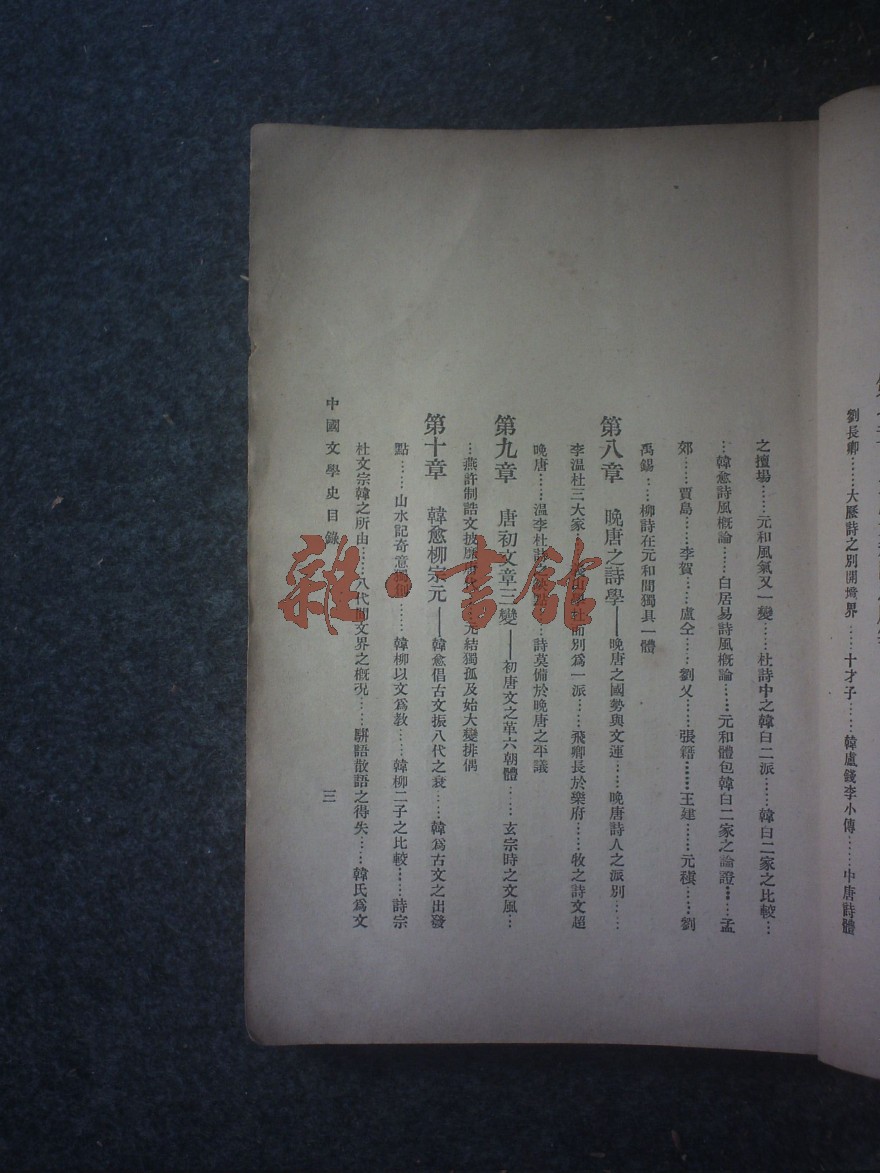 劉長卿……大歷詩之別開境界……十才子……韓盧錢李小傳……中唐詩體
之擅場……元和風氣又一變……杜詩中之韓白二派……韓白二家之比較…
…韓愈詩風概論……白居易詩風概論……元和體包韓白二家之論證……孟
郊……賈島……李賀……盧仝……劉乂……張籍……王建……元稹……劉
禹錫……柳詩在元和間獨具一體
第八章 晚唐之詩學——晚唐之國勢與文運……晚唐詩人之派別……
李溫杜三大家 學杜而別爲一派……飛卿長於樂府……牧之詩文超
晚唐……溫李杜詩 …詩莫備於晚唐之平議
第九章 唐初文章三變——初唐文之革六朝體……玄宗時之文風…
…燕許制誥文披靡 元結獨孤及始大變排偶
第十章 韓愈柳宗元——韓愈倡古文振八代之衰……韓爲古文之出發
點……山水記奇意獨 ……韓柳以文爲教……韓柳二子之比較……詩宗
杜文宗韓之所由……八代間文界之概況……駢語散語之得失……韓氏爲文
中國文學史目錄 三
雜·書館